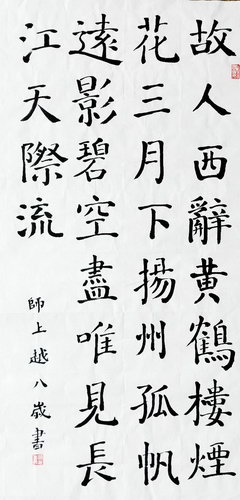 故人西辭黄鶴樓煙
花三月下揚州孤帆
遠影碧空盡唯見長
江天際流
師上越八歲書